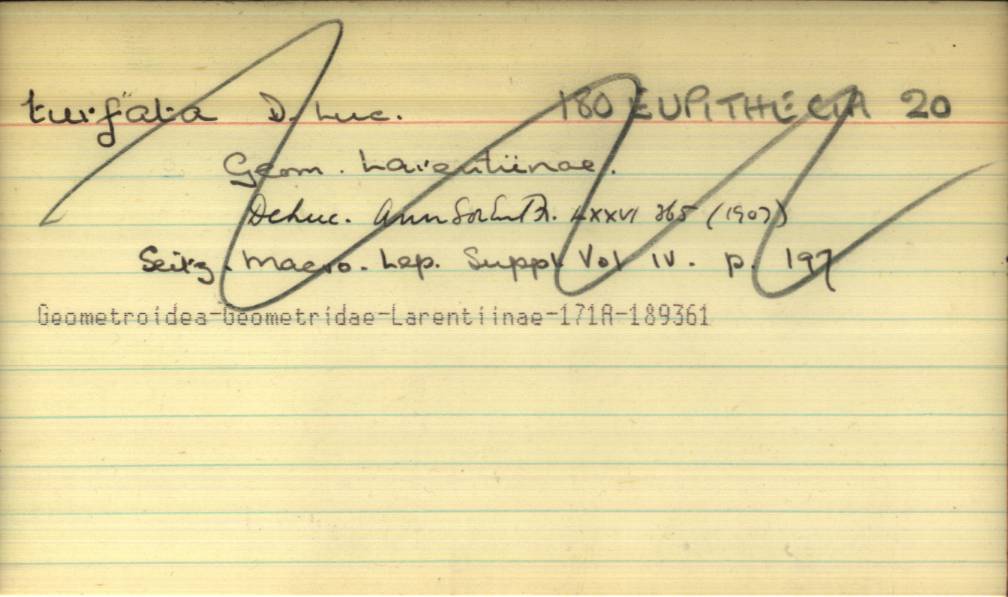 turfata D. Luc. 180 EUPITHECIA 20
Geom. Larentiinae.
DeLuc. Ann Soc Ent Fr. LXXVI 365 (1907)
Seitz. Macro. Lep. Suppl Vol IV. p. 197
Geometroidea-Geometridae-Larentiinae-171A-189361